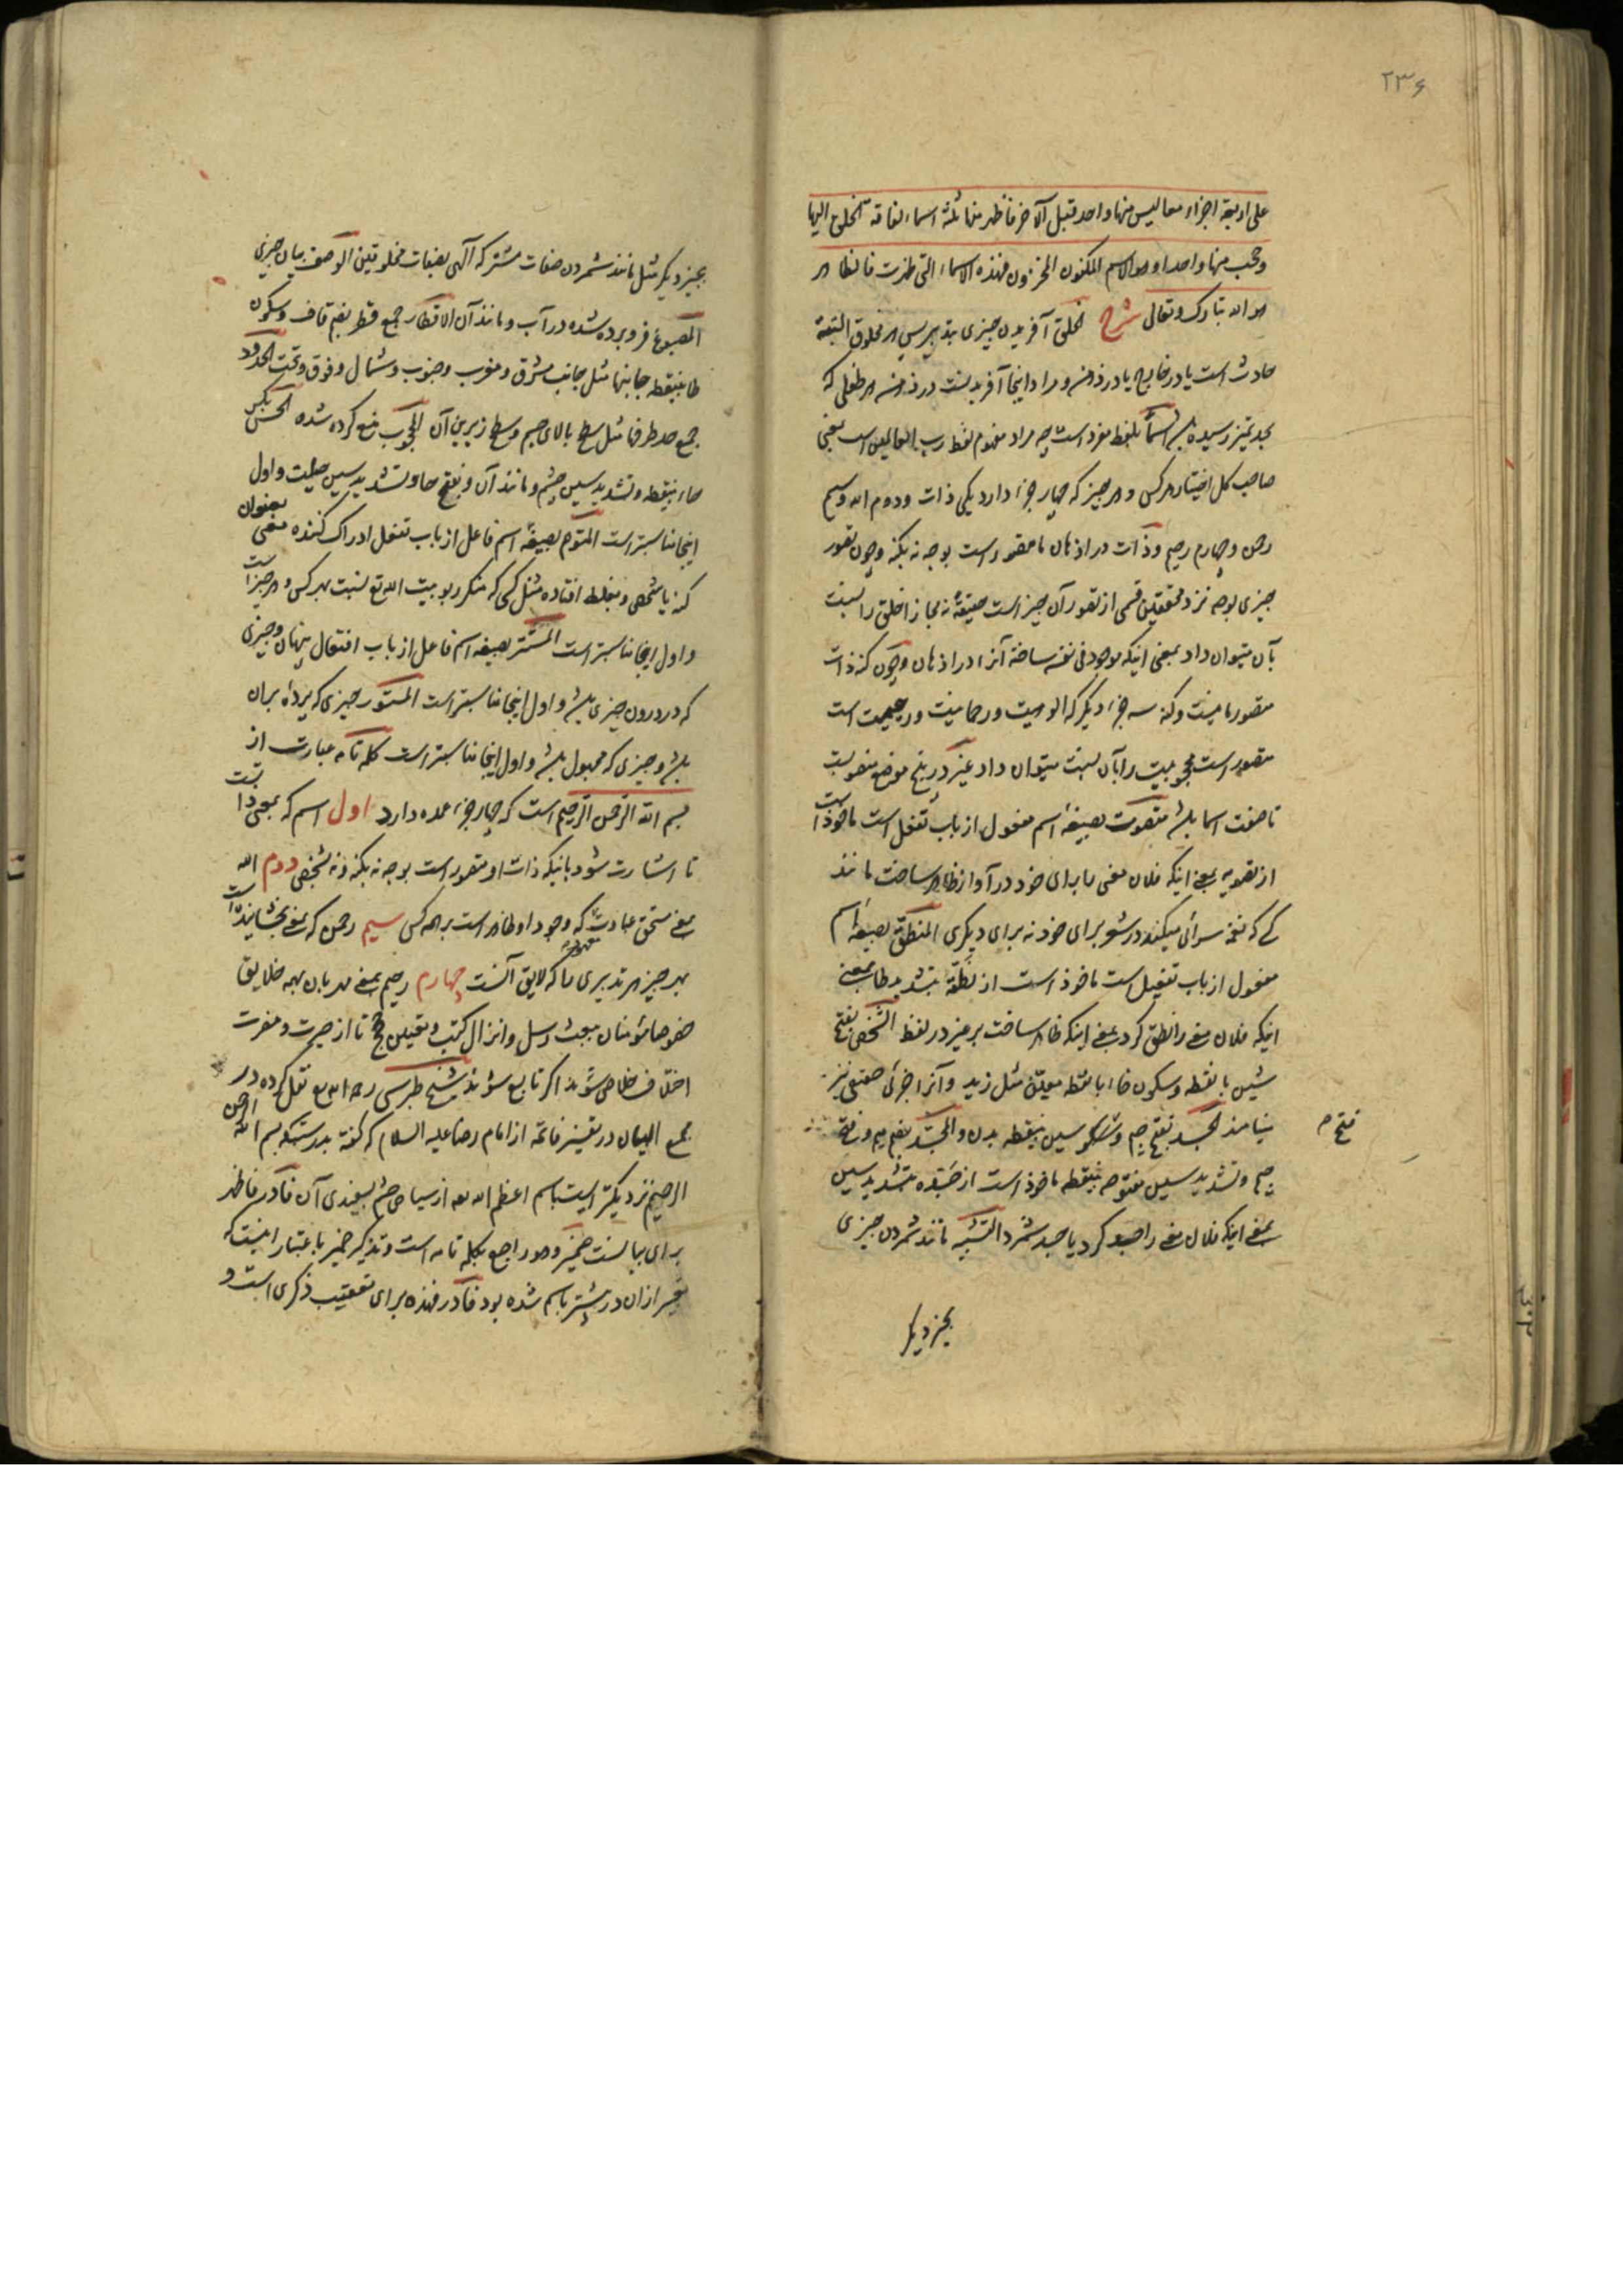 ۲۳۶
علی اربعة اجزاء معا لیس منها واحد قبل الآخر فاظهر منها ثلثة اسماء لفاقة الخلق الیها
وحجب منها واحدا و هو الاسم المکنون المخزون فهذه الاسماء التی ظهرت فالظاهر
هو الله تبارک و تعالی شرح الخلق آفریدن چیزی بتدبیر پس هر مخلوق البته
حادث است یا در خارج یا در ذهن و مراد اینجا آفریدنست در ذهن هر طفلی که
بحد تمیز رسیده باشد اسما بلفظ مفرد است چه مراد مفهوم لفظ رب العالمین است یعنی
صاحب کل اختیار هر کس و هر چیز که چهار جزء دارد یکی ذات و دوم الله و سیم
رحمن و چهارم رحیم و ذات در اذهان ما متصور است بوجه نه بکنه و چون تصور
چیزی بوجه نزد محققین قسمی از تصور آن چیز است حقیقة نه مجازا خلق را نسبت
بآن میتوان داد بمعنی اینکه موجود فی نفسه ساخته آنرا در اذهان و چون کنه ذات
متصور ما نیست و کنه سه جزء دیگر که الوهیت و رحمانیت و رحیمیت است
متصور است مجعولیت را بآن نسبت میتوان داد غیر در پنج موضع منصوبست
تا صفت اسما باشد متصوت بصیغه اسم مفعول از باب تفعل است ماخوذ است
از تصویت بمعنی اینکه فلان معنی را برای خود در آواز ظاهر ساخت مانند
کسی که نغمه سرائی میکند در شعر برای خود نه برای دیگری المنطق بصیغه اسم
مفعول از باب تفعیل است ماخوذ است از نطقه بتشدید طا بمعنی
اینکه فلان معنی را نطق کرد بمعنی اینکه ظاهر ساخت بر غیر در لفظ الشخص بفتح
شین با نقطه و سکون خاء با نقطه معین مثل زید و آنرا جزئی حقیقی نیز
مینامند الجسد بفتح جیم و سین بینقطه بدن و المجسد بضم میم و فتح
فتح م
جیم و تشدید سین مفتوحه بینقطه ماخوذ است از جسده بتشدید سین
بمعنی اینکه فلان معنی را جسد کرد یا جسد شمرد التشبیه مانند شمردن چیزی
بچیز دیگر
بچیز دیگر مثل مانند شمردن صفات مشترکه الهی بصفات مخلوقین الوصف بیان چیزی
المصبوغ فرو برده شده در آب و مانند آن الاقطار جمع قطر بضم قاف و سکون
طا بینقطه جانبها مثل جانب مشرق و مغرب و جنوب و شمال و فوق و تحت الحدود
جمع حد طرفها مثل سطح بالای جسم و سطح زیرین آن المحجوب منع کرده شده الحس بکسر
حاء بینقطه و تشدید سین چشم و مانند آن و بفتح حا و تشدید سین حیلت و اول
اینجا مناسبتر است المتوهم بصیغه اسم فاعل از باب تفعل ادراک کننده معنی بعنوان
کنه یا شخص و بغلط افتاده مثل کسی که منکر ربوبیت الله تع نسبت بهر کس و هر چیز است
و اول اینجا مناسبتر است المستتر بصیغه اسم فاعل از باب افتعال پنهان و چیزی
که در درون چیزی باشد و اول اینجا مناسبتر است المستور چیزی که پرده بران
باشد و چیزی که مجهول باشد و اول اینجا مناسبتر است کلمه تامه عبارت از
بسم الله الرحمن الرحیم است که چهار جزء عمده دارد اول اسم که بمعنی ذاتست
تا اشارت شود باینکه ذات او متصور است بوجه نه بکنه و نه شخصی دوم الله
بمعنی مستحق عبادت که وجود او ظاهر است بر همه کس سیم رحمن که بمعنی بخشاینده است
بهر چیز هر تدبیری را که لایق آنست چهارم رحیم بمعنی مهربان بهمه خلایق
خصوصا مؤمنان ببعث رسل و انزال کتب و تعیین حجج تا از حیرت و مضرت
اختلاف خلاص شوند اگر تابع شوند شیخ طبرسی رحمه الله تع نقل کرده در
مجمع البیان در تفسیر فاتحه از امام رضا علیه السلام که گفته بدرستیکه بسم الله الرحمن
الرحیم نزدیکتر است باسم اعظم الله تع از سیاهی چشم بسفیدی آن فا در فاظهر
برای بیانست ضمیر و هو راجع بکلمه تامه است و تذکیر ضمیر باعتبار اینست که
تعبیر ازان در پیشتر باسم شده بود فا در فهذه برای تعقیب ذکری است و